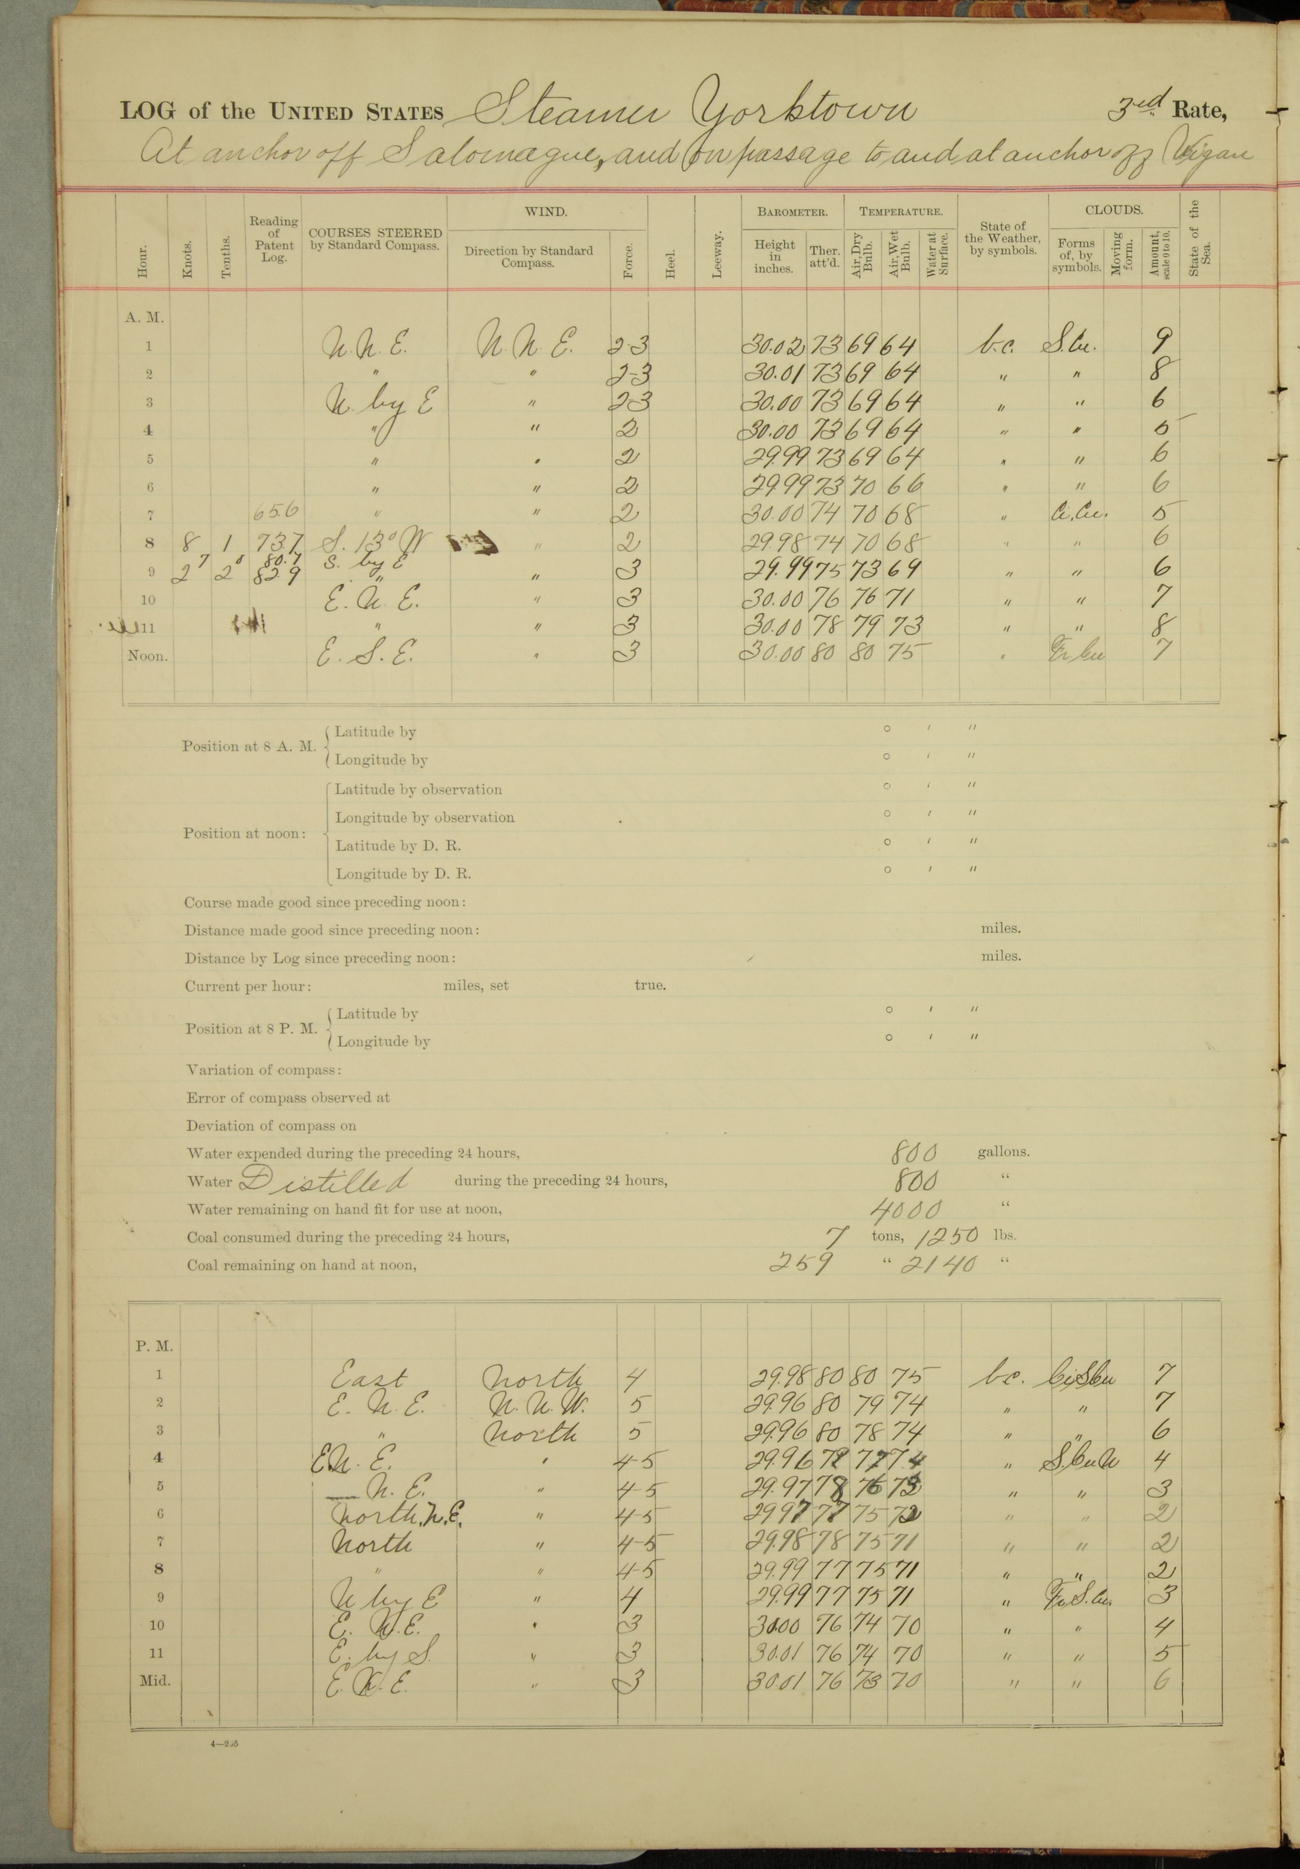 LOG of the UNITED STATES Steamer Yorktown 3rd Rate,
At anchor off Salomague, and on passage to and at anchor off Vigan
Hour. Knots. Tenths. Reading of Patent Log. COURSES STEERED by Standard Compass. WIND. Direction by Standard Compass. Force. Heel. Leeway. BAROMETER. Height in inches. Ther. att'd. TEMPERATURE. Air, Dry Bulb. Air, Wet Bulb. Water at Surface. State of the Weather, by symbols. CLOUDS. Forms of, by symbols. Moving form. Amount, scale 0 to 10. State of the Sea.
A. M.
1 N. N. E. N. N. E. 2-3 30.02 73 69 64 b.c. S.Cu. 9
2 " " 2-3 30.01 73 69 64 " " 8
3 N. by E " 2-3 30.00 73 69 64 " " 6
4 " " 2 30.00 73 69 64 " " 5
5 " " 2 29.99 73 69 64 " " 6
6 " " 2 29.99 73 70 66 " " 6
7 65.6 " " 2 30.00 74 70 68 " Ci.Cu. 5
8 8 1 73.7 S. 13° W " 2 29.98 74 70 68 " " 6
7 0 80.7 S. by E
9 2 2 82.9 " " 3 29.99 75 73 69 " " 6
10 E. N. E. " 3 30.00 76 76 71 " " 7
11 " " 3 30.00 78 79 73 " " 8
Noon. E. S. E. " 3 30.00 80 80 75 " Fr Cu 7
Position at 8 A. M. Latitude by ° ' "
Longitude by ° ' "
Position at noon: Latitude by observation ° ' "
Longitude by observation ° ' "
Latitude by D. R. ° ' "
Longitude by D. R. ° ' "
Course made good since preceding noon:
Distance made good since preceding noon: miles.
Distance by Log since preceding noon: miles.
Current per hour: miles, set true.
Position at 8 P. M. Latitude by ° ' "
Longitude by ° ' "
Variation of compass:
Error of compass observed at
Deviation of compass on
Water expended during the preceding 24 hours, 800 gallons.
Water Distilled during the preceding 24 hours, 800 "
Water remaining on hand fit for use at noon, 4000 "
Coal consumed during the preceding 24 hours, 7 tons, 1250 lbs.
Coal remaining on hand at noon, 259 " 2140 "
P. M.
1 East North 4 29.98 80 80 75 b.c. Ci.S.Cu 7
2 E. N. E. N. N. W. 5 29.96 80 79 74 " " 7
3 " North 5 29.96 80 78 74 " " 6
4 E.N. E. " 4-5 29.96 77 74 " S.Cu N 4
5 N. E. " 4-5 29.97 78 76 " " 3
6 North.N.E. " 4-5 29.97 77 75 72 " " 2
7 North " 4-5 29.98 78 75 71 " " 2
8 " " 4-5 29.99 77 75 71 " " 2
9 N by E " 4 29.99 77 75 71 " Fr.S.Cu. 3
10 E. N. E. " 3 30.00 76 74 70 " " 4
11 E. by S. " 3 30.01 76 74 70 " " 5
Mid. E. N. E. " 3 30.01 76 73 70 " " 6